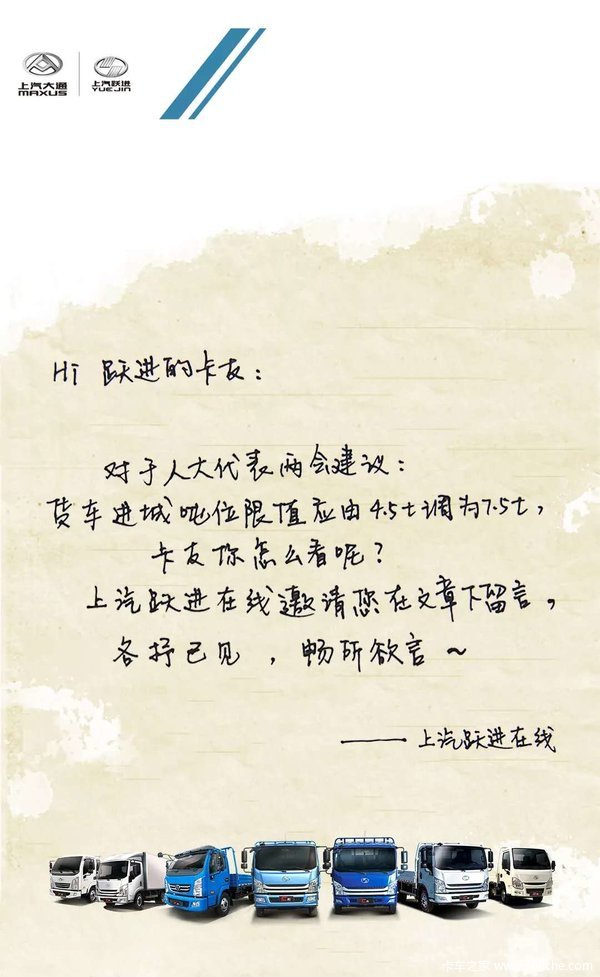 上汽大通 上汽跃进
MAXUS YUEJIN
Hi 跃进的卡友：
对于人大代表两会建议：
货车进城吨位限值应由4.5t调为7.5t，
卡友你怎么看呢？
上汽跃进在线邀请您在文章下留言，
各抒己见，畅所欲言~
——上汽跃进在线
卡车之家